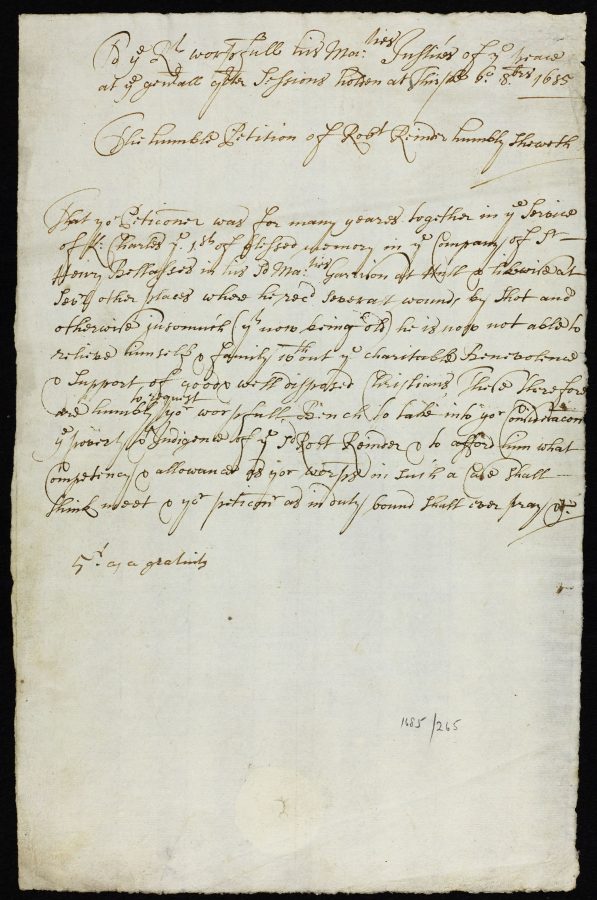 To ye Rt worshfull his Maties Justices of ye peace
at ye generall qter Sessions holden at Thirske 6o 8bris 1685
The humble Petition of Robt Reinder humbly Sheweth
That yor Peticoner was for many yeares together in ye Service
of K: Charles ye 1st of blessed memory in ye Company of Sr
Henry Bellasses in his sd Maties Garrison at Hull & likewise at
sevll other places where he recd severall wounds by Shot and
otherwise insomuch (yt now being old) he is now not able to
relieve himself & family wthout ye charitable Benevolence
& Support of good & well disposed Christians, These therefore
are humbly to request yor worshfull Bench to take into yor Consideracon
ye poverty & Indigence of ye sd Robt Reinder & to afford him what
Competency & allowance as yor worps in such a Case shall
think meet & yor peticonr as in duty bound shall ever pray &c
5s as a gratuity
1685/265